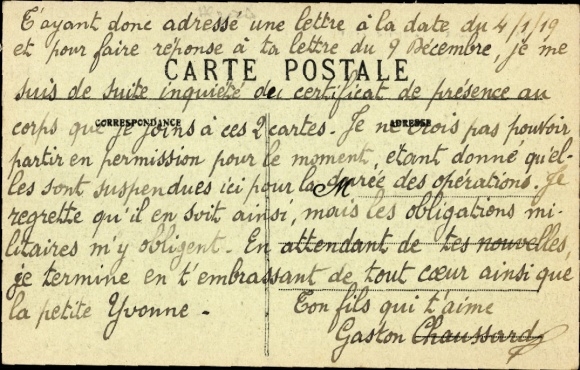 T'ayant donc adressé une lettre à la date du 4/1/19
et pour faire réponse à ta lettre du 9 Décembre, je me
CARTE POSTALE
suis de suite inquiété du certificat de présence au
CORRESPONDANCE
ADRESSE
corps que je joins à ces 2 cartes. Je ne crois pas pouvoir
partir en permission pour le moment, étant donné qu'el-
les sont suspendues ici pour la durée des opérations. Je
M
regrette qu'il en soit ainsi, mais les obligations mi-
litaires m'y obligent. En attendant de tes nouvelles,
je termine en t'embrassant de tout cœur ainsi que
la petite Yvonne.
Ton fils qui t'aime
Gaston Chaussard